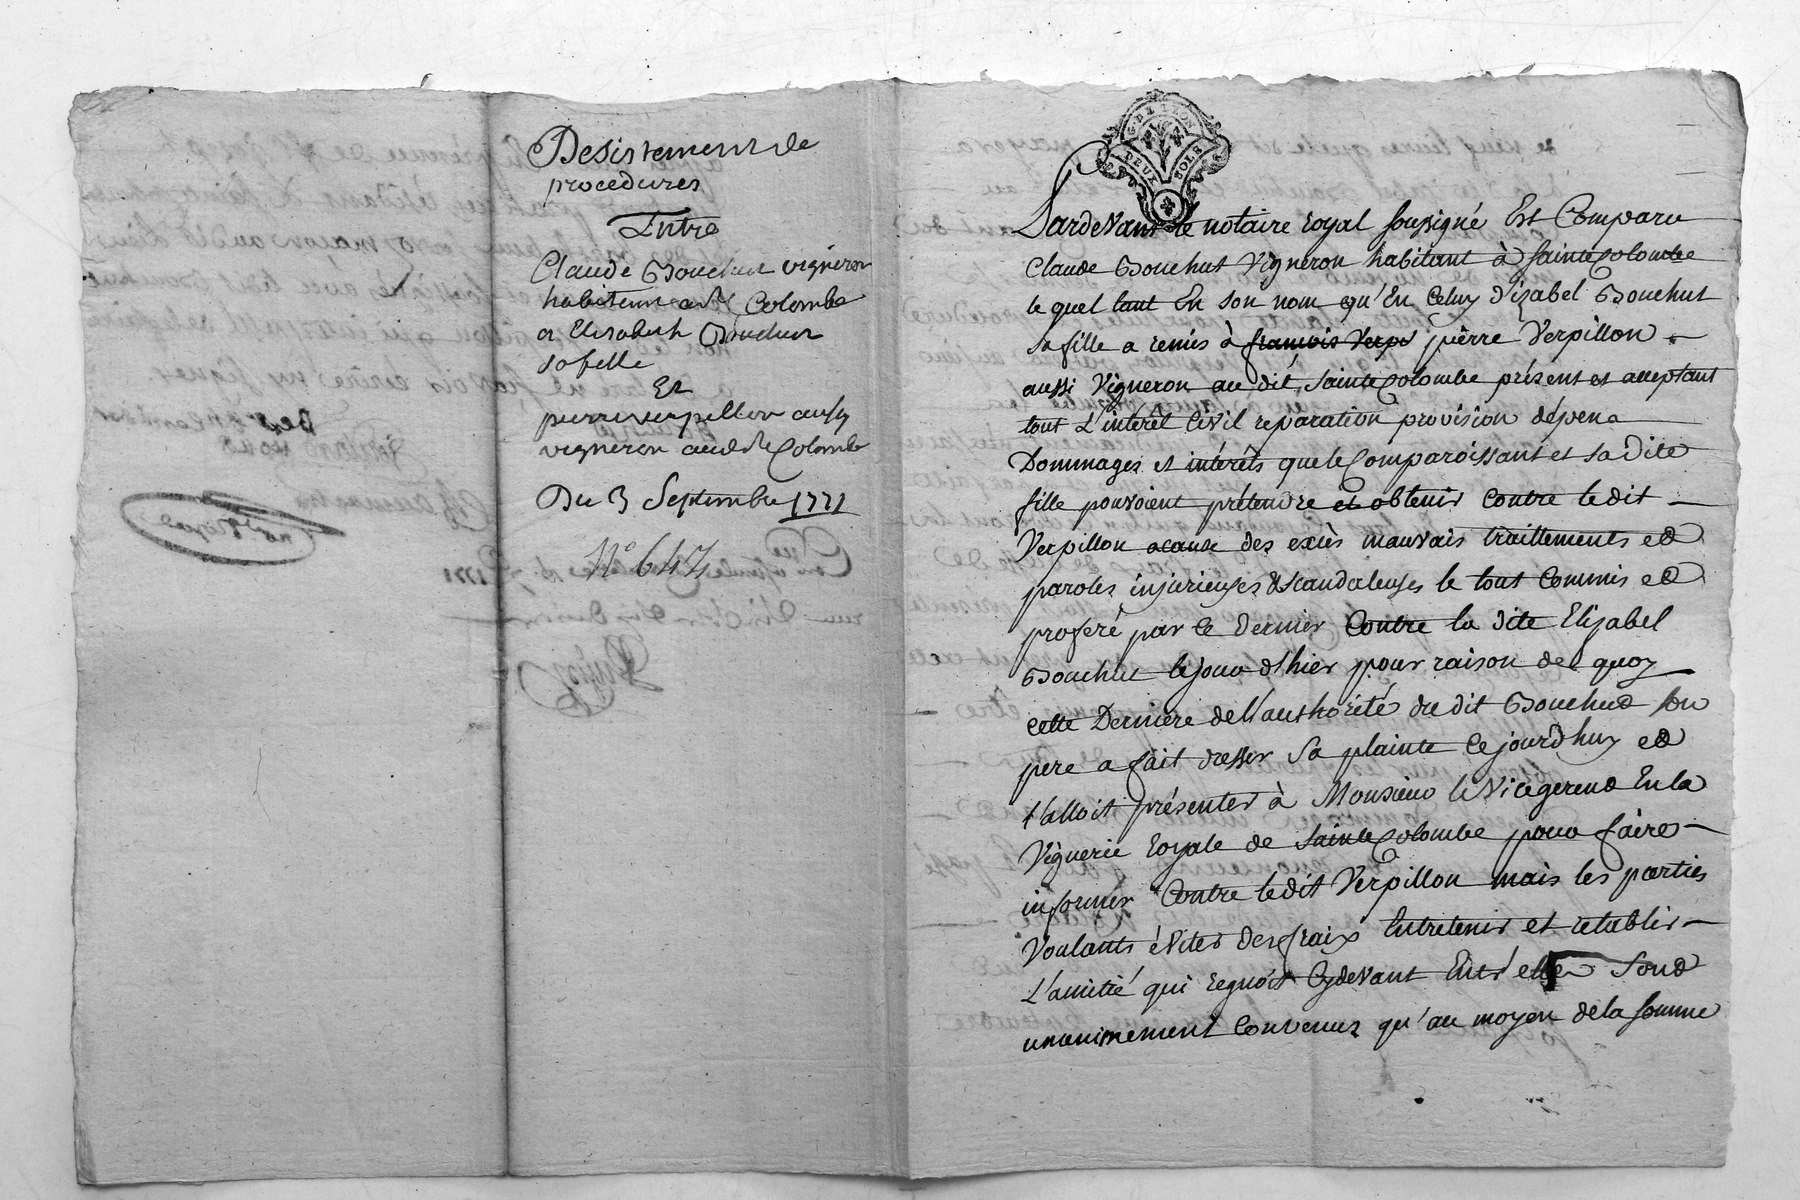 Desistement de
procedures
Entre
Claude Bouchut vigneron
habitant a Ste Colombe
et Elisabeth Bouchut
sa fille
Et
pierre verpillon aussy
vigneron aud Ste Colombe
Du 3 Septembre 1771
N° 647
G. DE LYON
DEUX SOLS
Pardevant le notaire royal soussigné Est Comparu
Claude Bouchut Vigneron habitant à Sainte Colombe
le quel tant En son nom qu'En Celuy d'izabel Bouchut
sa fille a remis à francois Verpi pierre Verpillon
aussi Vigneron au dit Sainte Colombe présent et acceptant
tout L'intérêt Civil reparation provision dépens
Dommages et intérêts que le Comparoissant et sa Dite
fille pouvoient prétendre et obtenir Contre ledit
Verpillon acause des excès mauvais traittements et
paroles injurieuses & scandaleuses le tout Commis et
proferé par Ce dernier Contre la dite Elizabel
Bouchut le jour d'hier pour raison de quoy
cette Derniere de l'authorité du dit Bouchut son
pere a fait dresser Sa plainte Cejourd'huy et
l'alloit présenter à Monsieur le Vicegerent En la
Viguerie Royale de Sainte Colombe pour faire
informer Contre ledit Verpillon mais les parties
Voulants éviter des fraix Entretenir et rétablir
L'amitié qui regnoit Cydevant Entr'elles Sont
unanimement Convenus qu'au moyen de la somme